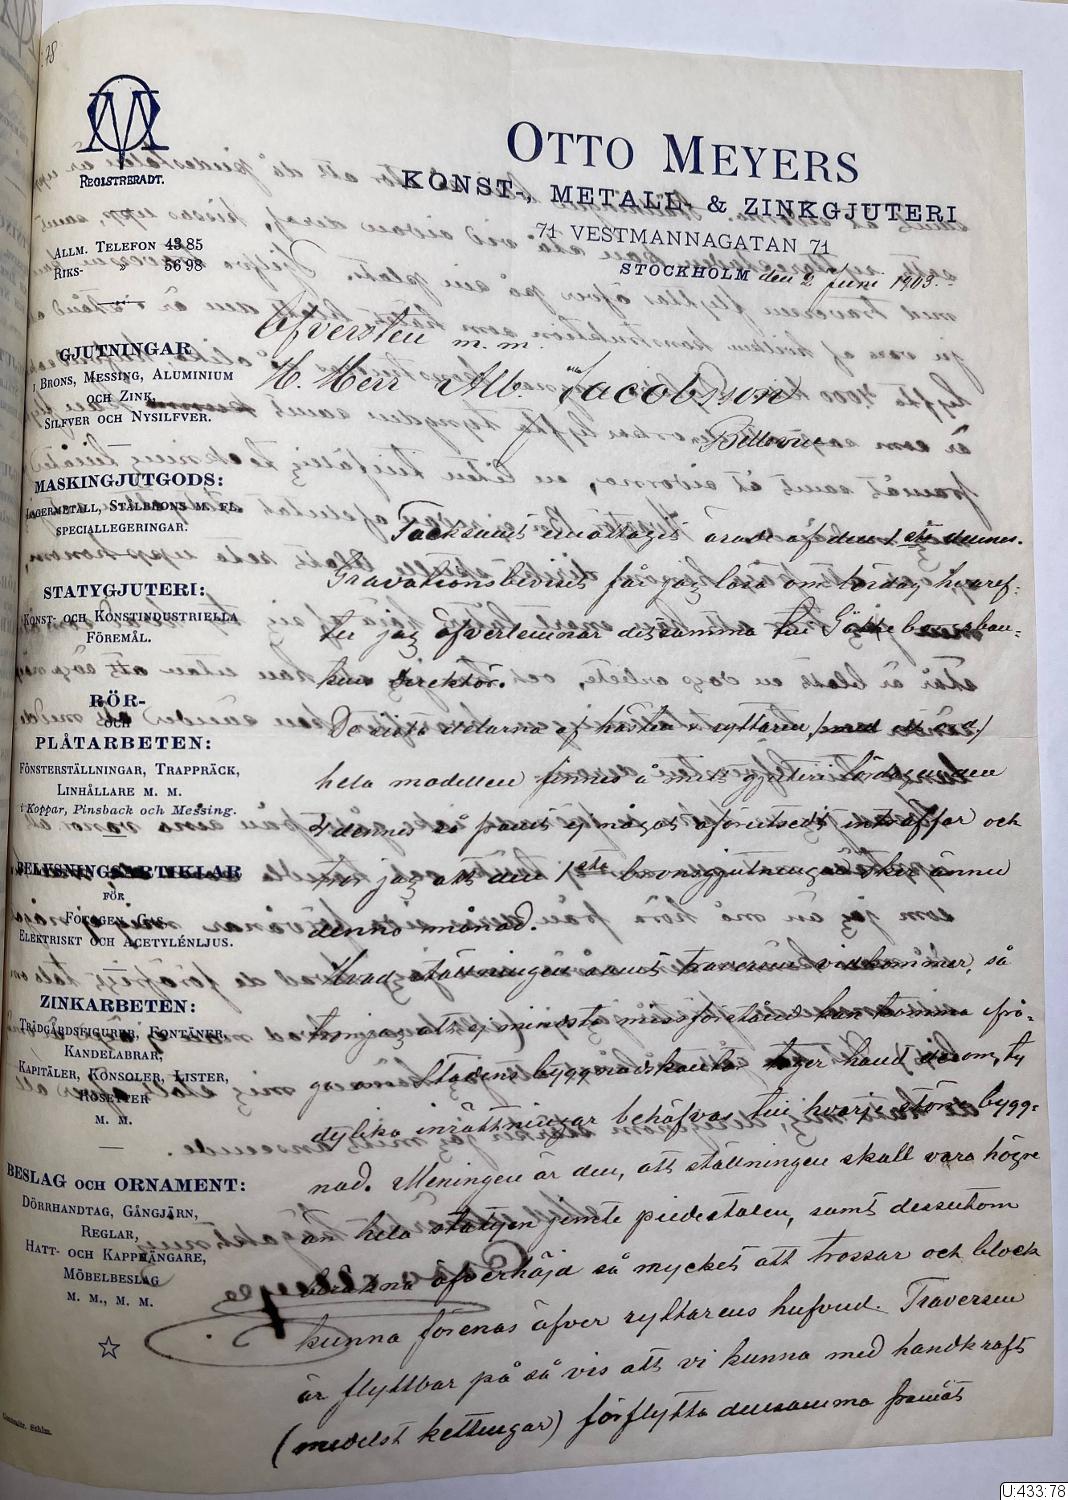 78
OM
REGISTRERADT.
OTTO MEYERS
KONST-, METALL- & ZINKGJUTERI
71 VESTMANNAGATAN 71
STOCKHOLM den 2 Juni 1903.
ALLM. TELEFON 43 85
RIKS- „ 56 98
GJUTNINGAR
I BRONS, MESSING, ALUMINIUM
OCH ZINK,
SILFVER OCH NYSILFVER.
MASKINGJUTGODS:
LAGERMETALL, STÅLBRONS M. FL.
SPECIALLEGERINGAR.
STATYGJUTERI:
KONST- OCH KONSTINDUSTRIELLA
FÖREMÅL.
RÖR-
OCH
PLÅTARBETEN:
FÖNSTERSTÄLLNINGAR, TRAPPRÄCK,
LINHÅLLARE M. M.
i Koppar, Pinsback och Messing.
BELYSNINGSARTIKLAR
FÖR
FOTOGEN, GAS,
ELEKTRISKT OCH ACETYLÉNLJUS.
ZINKARBETEN:
TRÄDGÅRDSFIGURER, FONTÄNER,
KANDELABRAR,
KAPITÄLER, KONSOLER, LISTER,
ROSETTER
M. M.
BESLAG OCH ORNAMENT:
DÖRRHANDTAG, GÅNGJÄRN,
REGLAR,
HATT- OCH KAPPHÄNGARE,
MÖBELBESLAG
M. M., M. M.
Centraltr. Sthlm.
Öfversten m. m.
H. Herr Alb. Jacobsson
Tacksamt emottagit ärade af den 1sta dennes.
Gravationsbeviset får jag lösa om lördag hvaref-
ter jag öfverlemnar detsamma till Göteborgsban-
kens direktör.
De sista delarna af hästen & ryttaren, /med ett ord/
hela modellen finnes å mitt gjuteri lördagen den
dennes så framt ej något oförutsedt inträffar och
tror jag att den 1sta bronsgjutningen sker ännu
denna månad.
Hvad ställningen samt traversen vidkommer, så
tror jag att ej minsta missförstånd kan komma ifrå-
ga. Stadens byggnadskontor tager hand derom, ty
dylika inrättningar behöfvas till hvarje större bygg-
nad. Meningen är den, att ställningen skall vara högre
än hela statyen jemte piedestalen, samt dessutom
öfverhöja så mycket att trossar och block
kunna förenas öfver ryttarens hufvud. Traversen
är flyttbar på så vis att vi kunna med handkraft
(medelst kettingar) förflytta densamma framåt
U:433:78